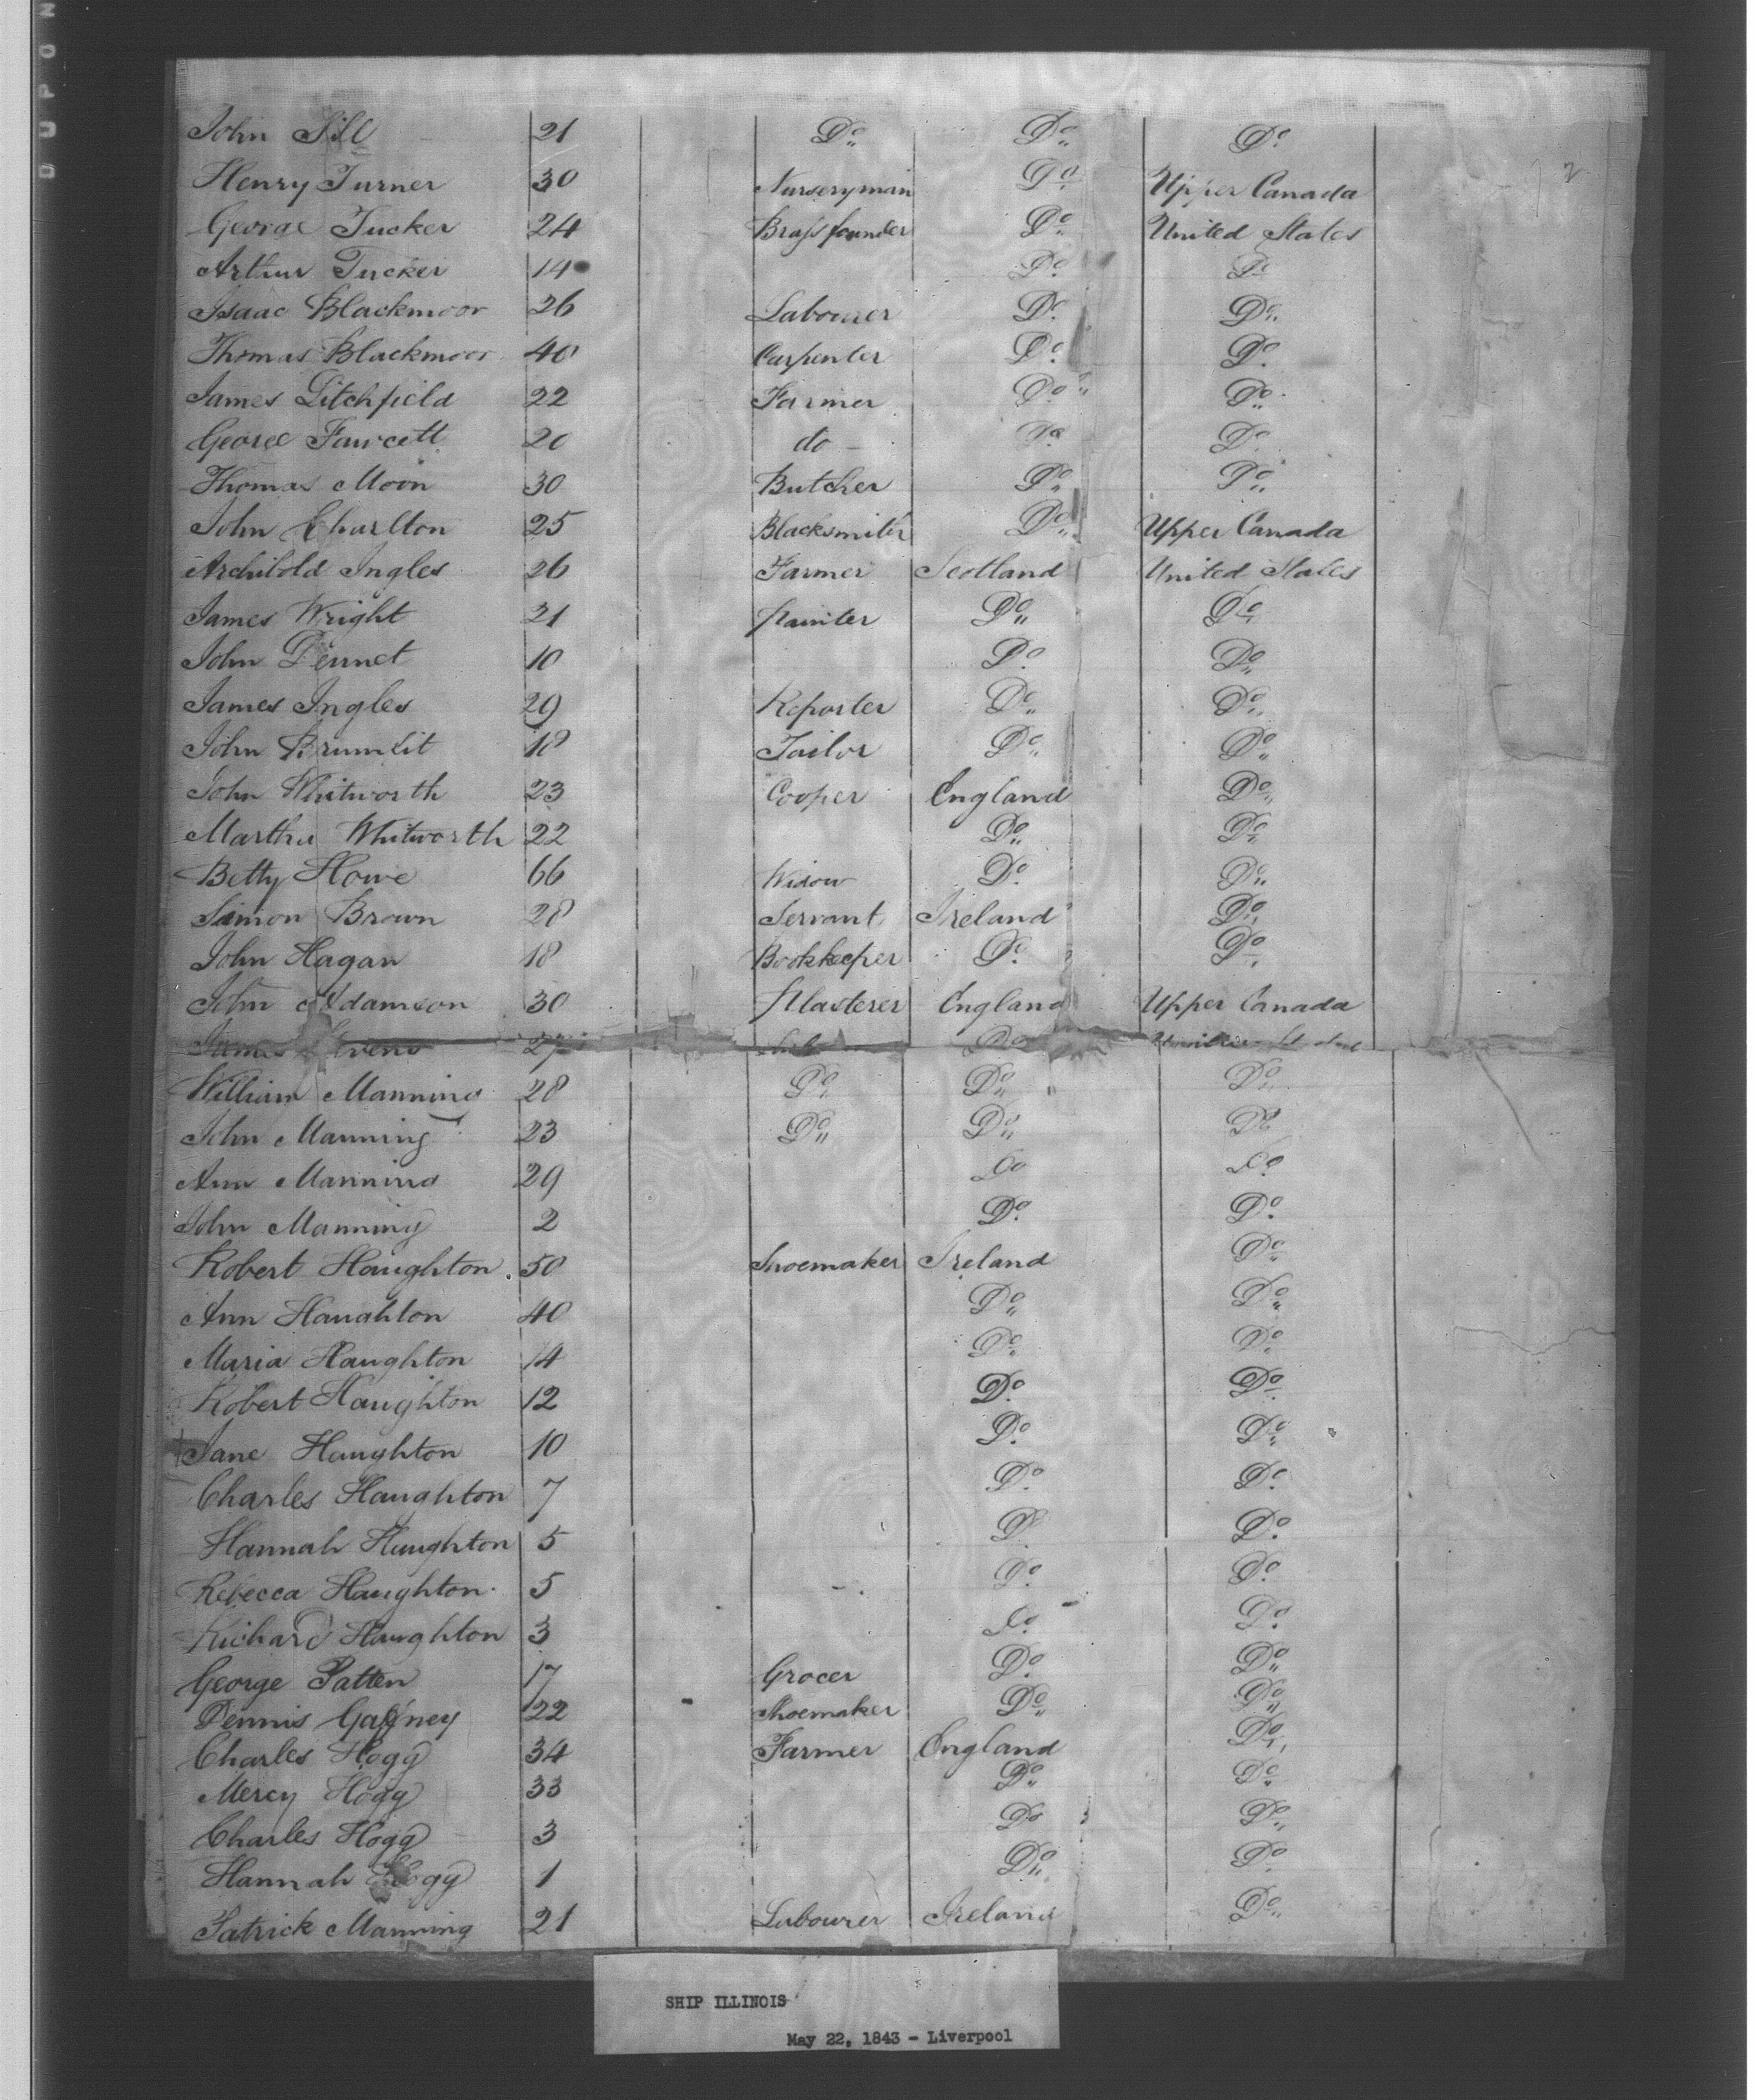 DUPON
2
John Till 21 Do Do Do
Henry Turner 30 Nurseryman Do Upper Canada
George Tucker 24 Brassfounder Do United States
Arthur Tucker 14 Do Do
Isaac Blackmoor 26 Labourer Do Do
Thomas Blackmoor 40 Carpenter Do Do
James Litchfield 22 Farmer Do Do
George Fawcett 20 do Do Do
Thomas Moon 30 Butcher Do Do
John Charlton 25 Blacksmith Do Upper Canada
Archibold Ingles 26 Farmer Scotland United States
James Wright 21 Painter Do Do
John Dennet 10 Do Do
James Ingles 29 Reporter Do Do
John 18 Tailor Do Do
John Whitworth 23 Cooper England Do
Martha Whitworth 22 Do Do
Betty Howe 66 Widow Do Do
Simon Brown 28 Servant Ireland Do
John Hagan 18 Bookkeeper Do Do
John Adamson 30 Plasterer England Upper Canada
James 27 Do
William Manning 28 Do Do Do
John Manning 23 Do Do Do
Ann Manning 29 Do Do
John Manning 2 Do Do
Robert Haughton 50 Shoemaker Ireland Do
Ann Haughton 40 Do Do
Maria Haughton 14 Do Do
Robert Haughton 12 Do Do
Jane Haughton 10 Do Do
Charles Haughton 7 Do Do
Hannah Haughton 5 Do Do
Rebecca Haughton 5 Do Do
Richard Haughton 3 Do Do
George Patten 17 Grocer Do Do
Dennis Gafney 22 Shoemaker Do Do
Charles Hogg 34 Farmer England Do
Mercy Hogg 33 Do Do
Charles Hogg 3 Do Do
Hannah Hogg 1 Do Do
Patrick Manning 21 Labourer Ireland Do
SHIP ILLINOIS
May 22, 1843 - Liverpool